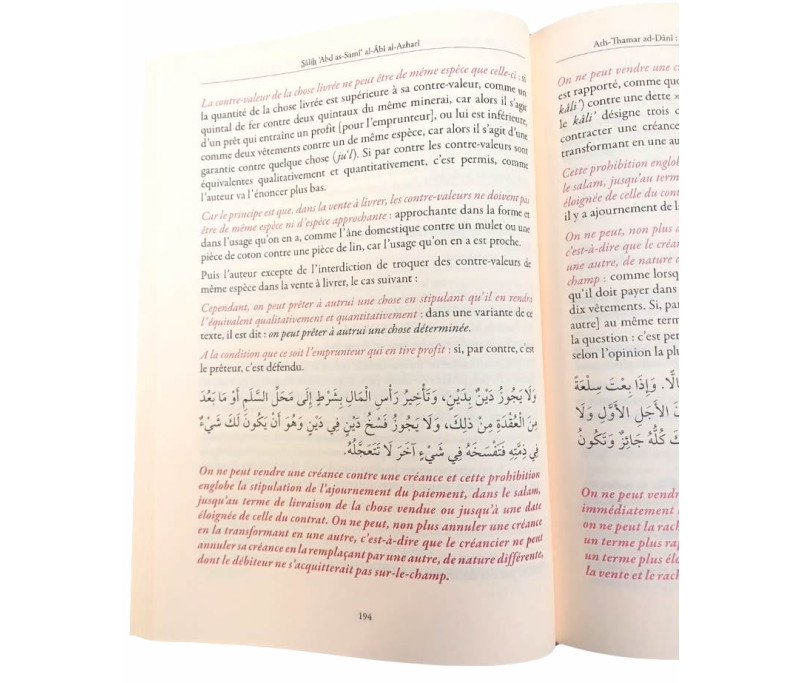 Ṣāliḥ ʿAbd as-Samīʿ al-Ābī al-Azharī
La contre-valeur de la chose livrée ne peut être de même espèce que celle-ci : si
la quantité de la chose livrée est supérieure à sa contre-valeur, comme un
quintal de fer contre deux quintaux du même minerai, car alors il s'agit
d'un prêt qui entraîne un profit [pour l'emprunteur], ou lui est inférieure,
comme deux vêtements contre un de même espèce, car alors il s'agit d'une
garantie contre quelque chose (ju'l). Si par contre les contre-valeurs sont
équivalentes qualitativement et quantitativement, c'est permis, comme
l'auteur va l'énoncer plus bas.
Car le principe est que, dans la vente à livrer, les contre-valeurs ne doivent pas
être de même espèce ni d'espèce approchante : approchante dans la forme et
dans l'usage qu'on en a, comme l'âne domestique contre un mulet ou une
pièce de coton contre une pièce de lin, car l'usage qu'on en a est proche.
Puis l'auteur excepte de l'interdiction de troquer des contre-valeurs de
même espèce dans la vente à livrer, le cas suivant :
Cependant, on peut prêter à autrui une chose en stipulant qu'il en rendra
l'équivalent qualitativement et quantitativement : dans une variante de ce
texte, il est dit : on peut prêter à autrui une chose déterminée.
A la condition que ce soit l'emprunteur qui en tire profit : si, par contre, c'est
le prêteur, c'est défendu.
وَلَا يَجُوزُ دَيْنٌ بِدَيْنٍ، وَتَأْخِيرُ رَأْسِ الْمَالِ بِشَرْطٍ إِلَى مَحَلِّ السَّلَمِ أَوْ مَا بَعُدَ
مِنَ الْعُقْدَةِ مِنْ ذَلِكَ، وَلَا يَجُوزُ فَسْخُ دَيْنٍ فِي دَيْنٍ وَهُوَ أَنْ يَكُونَ لَكَ شَيْءٌ
فِي ذِمَّتِهِ فَتَفْسَخَهُ فِي شَيْءٍ آخَرَ لَا تَتَعَجَّلُهُ.
On ne peut vendre une créance contre une créance et cette prohibition
englobe la stipulation de l'ajournement du paiement, dans le salam,
jusqu'au terme de livraison de la chose vendue ou jusqu'à une date
éloignée de celle du contrat. On ne peut, non plus annuler une créance
en la transformant en une autre, c'est-à-dire que le créancier ne peut
annuler sa créance en la remplaçant par une autre, de nature différente,
dont le débiteur ne s'acquitterait pas sur-le-champ.
194
Ath-Thamar ad-Dānī :
On ne peut vendre une c
est rapporté, comme que
kāli') contre une dette ×
le kāli' désigne trois c
contracter une créance
transformant en une au
Cette prohibition englobe
le salam, jusqu'au terme
éloignée de celle du cont
il y a ajournement de la
On ne peut, non plus a
c'est-à-dire que le créan
une autre, de nature d
champ : comme lorsq
qu'il doit payer dans
dix vêtements. Si, par
autre] au même term
la question : c'est per
selon l'opinion la plu
الًّا. وَإِذَا بِعْتَ سِلْعَةً
نَ الأَجَلِ الأَوَّلِ وَلَا
كَ كُلُّهُ جَائِزٌ وَتَكُونُ
On ne peut vendr
immédiatement
on ne peut la rach
un terme plus rap
un terme plus élo
la vente et le rach